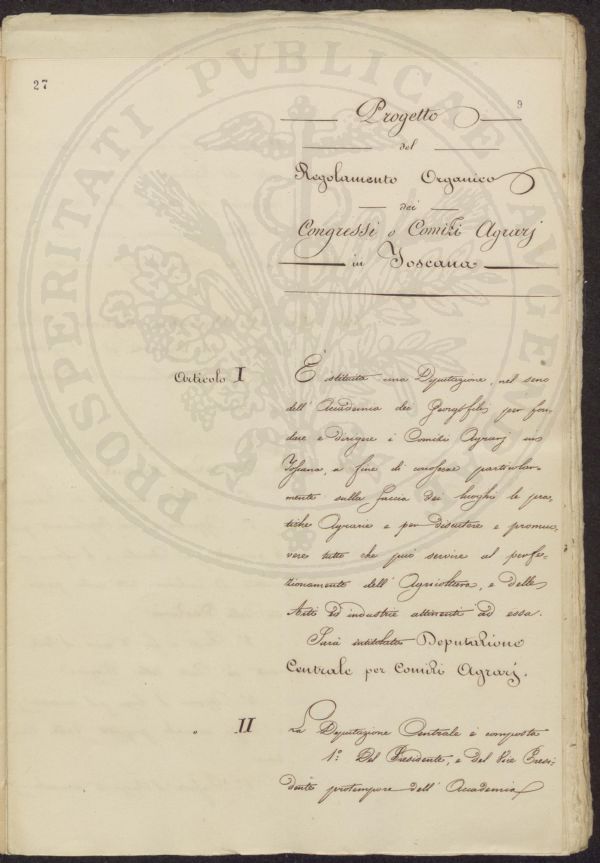 PROSPERITATI PVBLICAE AVGENDAE
27
9
Progetto
del
Regolamento Organico
dei
Congressi o Comizi Agrarj
in Toscana
Articolo I
È istituita una Deputazione, nel seno
dell'Accademia dei Georgofili, per fon-
dare e dirigere i Comizi Agrarj in
Toscana, a fine di conoscere particolar-
mente sulla faccia dei luoghi le pra-
tiche Agrarie e per discutere e promuo-
vere tutto che può servire al perfe-
zionamento dell'Agricoltura, e delle
Arti ed industrie attinenti ad essa.
Sarà intitolata Deputazione
Centrale per Comizi Agrarj.
" II
La Deputazione Centrale è composta
1º: Del Presidente, e del Vice Presi-
dente protempore dell'Accademia